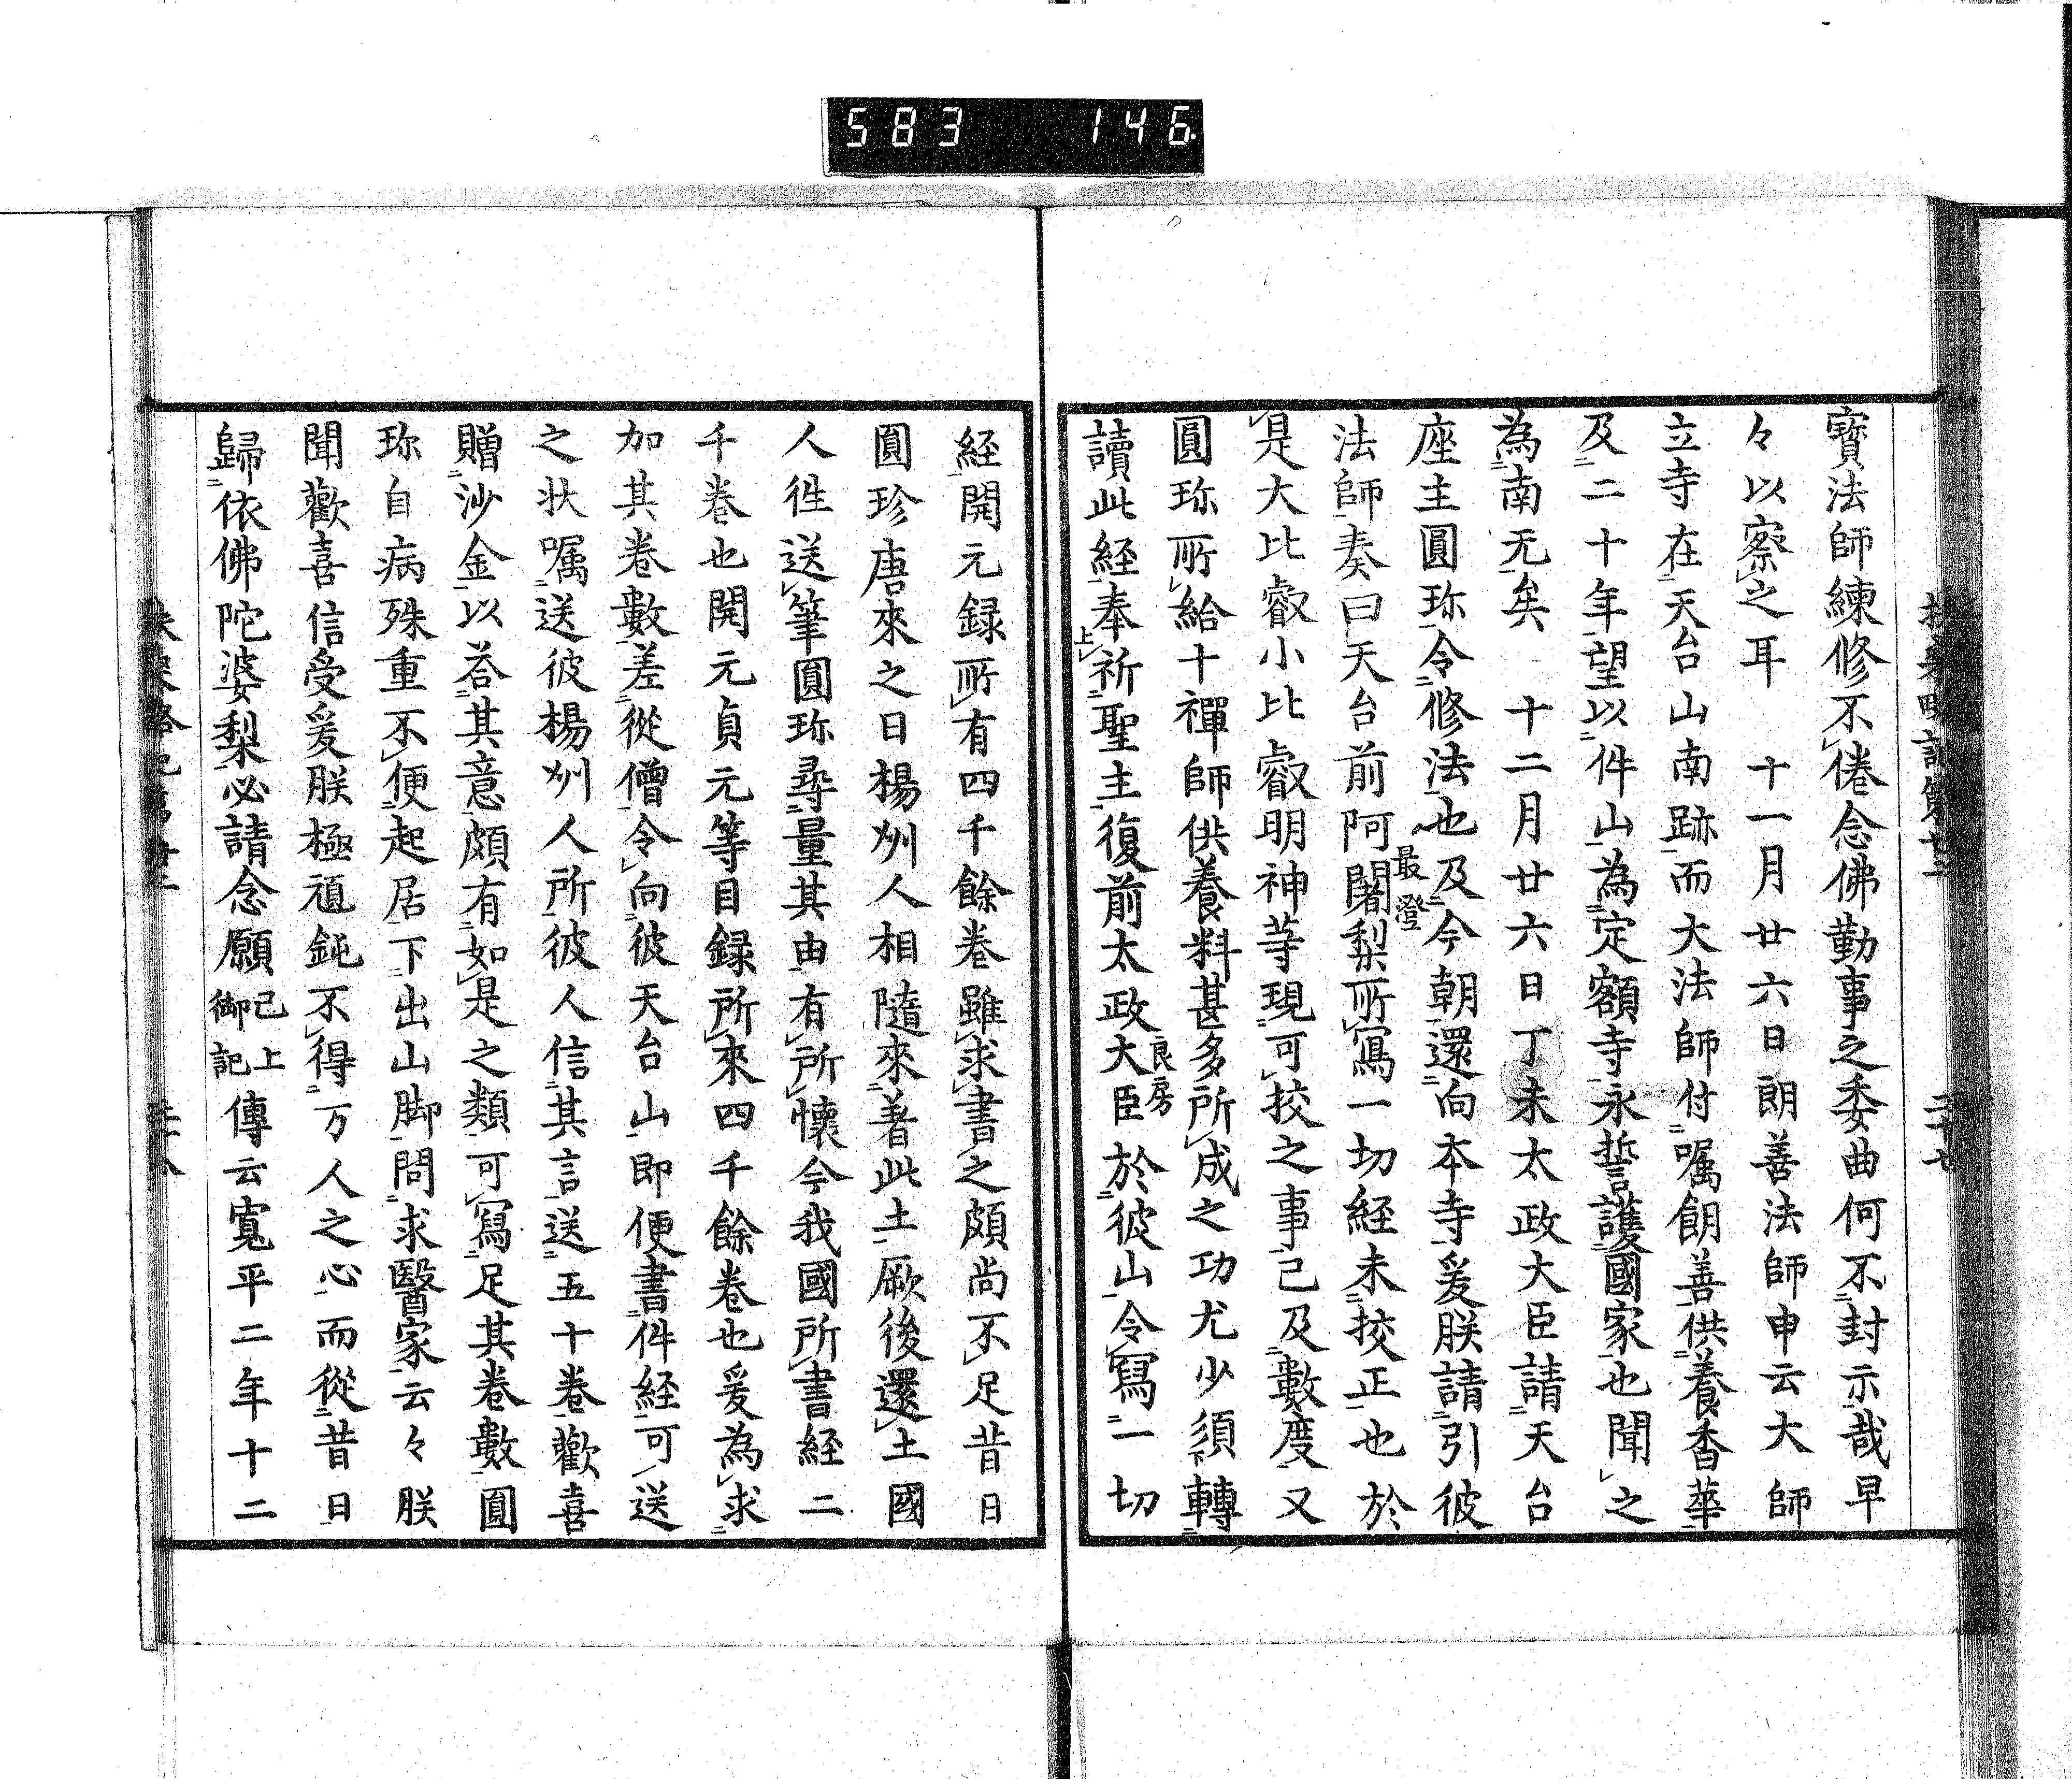 583 146
寳法師練修不倦念佛勤事之委曲何不封示哉早
々以察之耳　十一月廿六日朗善法師申云大師
立寺在天台山南跡而大法師付嘱朗善供養香華
及二十年望以件山為定額寺永誓護國家也聞之
為南无矣　十二月廿六日丁未太政大臣請天台
座主圓珎令修法也及今朝還向本寺爰朕請引彼
法師奏曰天台前阿闍梨最澄所寫一切経未挍正也於
是大比叡小比叡明神等現可挍之事己及數度又
圓珎所給十禪師供養料甚多所成之功尤少須轉
讀此経奉上祈聖主復前太政大臣良房於彼山令寫一切
経開元録所有四千餘卷雖求書之頗尚不足昔日
圓珍唐來之日楊州人相隨來著此土厥後還土國
人徃送筆圓珎尋量其由有所懐今我國所書経二
千卷也開元貞元等目録所來四千餘卷也爰為求
加其卷數差從僧令向彼天台山即便書件経可送
之状嘱送彼楊州人所彼人信其言送五十卷歡喜
贈沙金以荅其意頗有如是之類可寫足其卷數圓
珎自病殊重不便起居下出山脚問求醫家云々朕
聞歡喜信受爰朕極頑鈍不得万人之心而從昔日
歸依佛陀婆梨必請念願己上御記傳云寬平二年十二